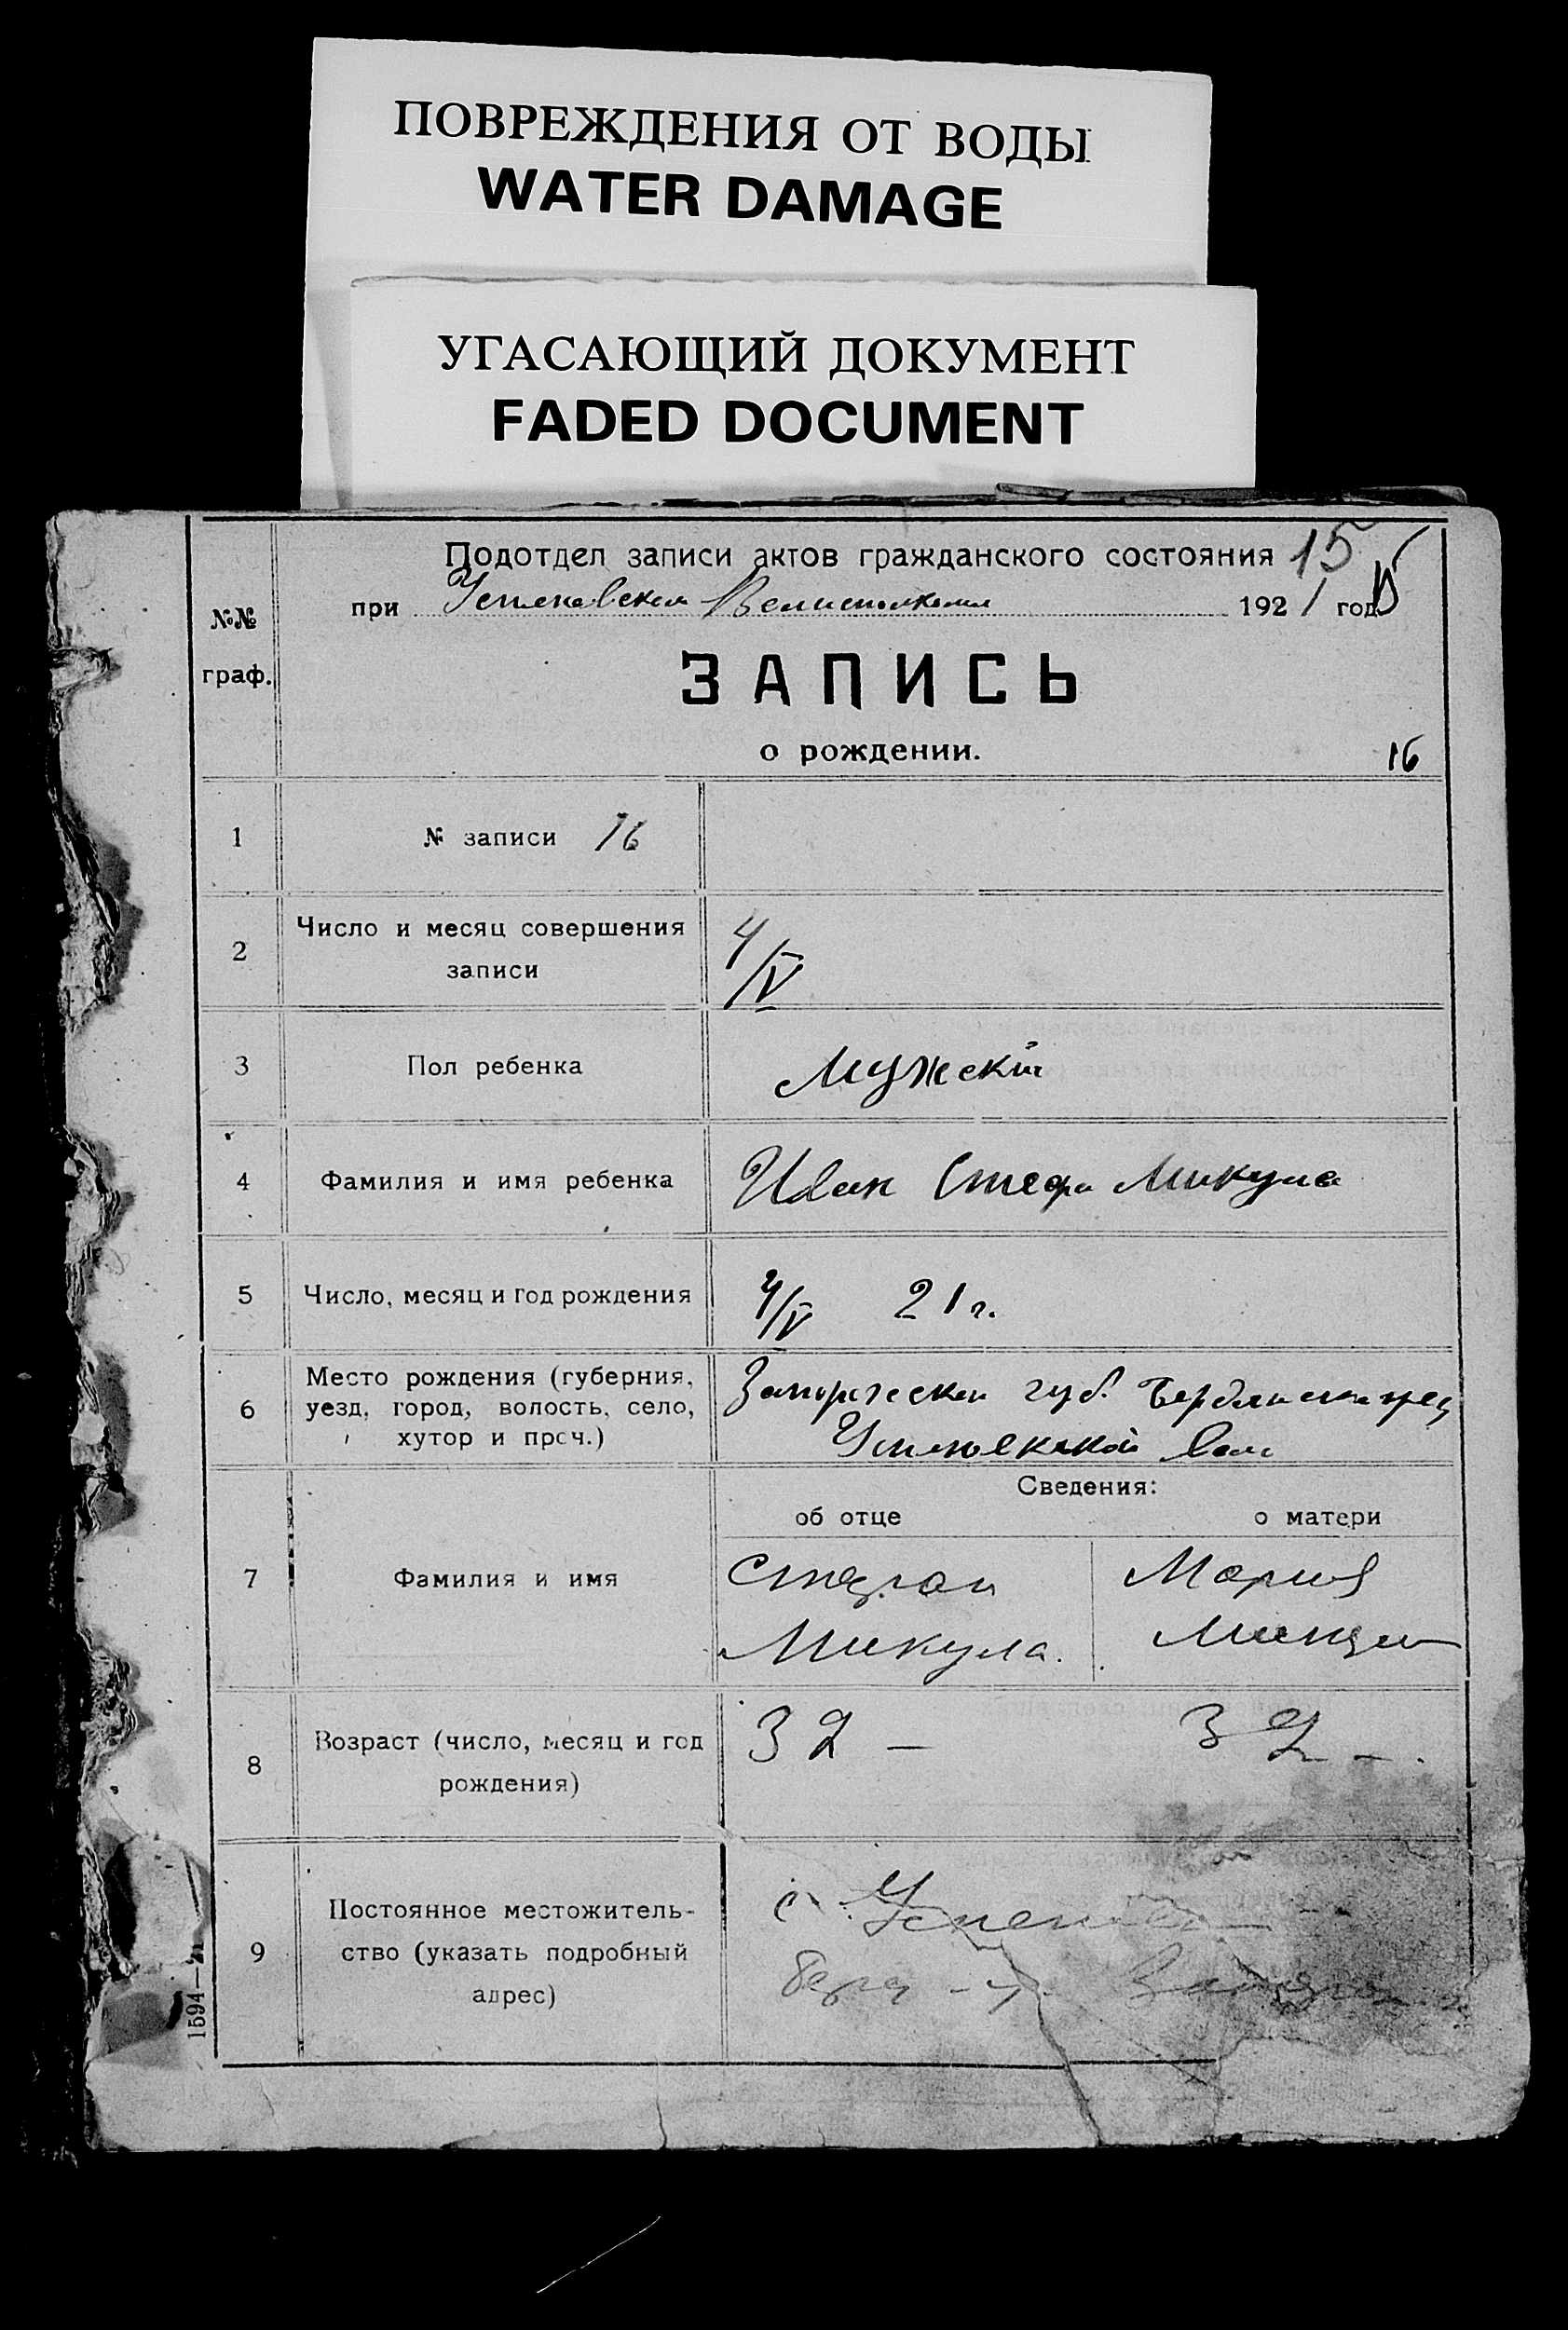 ПОВРЕЖДЕНИЯ ОТ ВОДЫ
WATER DAMAGE
УГАСАЮЩИЙ ДОКУМЕНТ
FADED DOCUMENT
Подотдел записи актов гражданского состояния 15
при 1921 год
№№
граф.
ЗАПИСЬ
о рождении.
16
1 № записи 16
2 Число и месяц совершения
записи
4/V
3 Пол ребенка Мужской
4 Фамилия и имя ребенка Иван Стефа Микула
5 Число, месяц и год рождения 4/V 21 г.
6 Место рождения (губерния,
уезд, город, волость, село,
хутор и проч.)
губ.
Сведения:
об отце о матери
7 Фамилия и имя
Стефан Мария
Микула.
8 Возраст (число, месяц и год
рождения)
32 — 32 —
9 Постоянное местожитель-
ство (указать подробный
адрес)
с.
1594—21